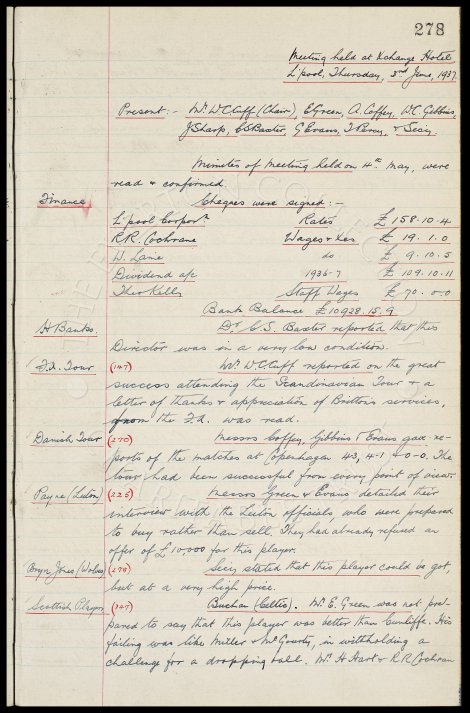 278
Meeting held at Xchange Hotel
L'pool, Thursday, 3rd June, 1937.
Present:- Mr. W.C. Cuff (Chair), E. Green, A. Coffey, W.C. Gibbins,
J. Sharp, C.S. Baxter, G. Evans, T. Percy, & Secy.
Minutes of Meeting held on 4th May, were
read & confirmed.
Finance Cheques were signed:-
L'pool Corporn Rates £158.10.4
R.R. Cochrane Wages & Xes £19.1.0
W. Lane do £9.10.5
Dividend a/c 1936-7 £109.10.11
Theo Kelly Staff Wages £70.0.0
Bank Balance £10928.15.9
H Banks Dr. C.S. Baxter reported that this
Director was in a very low condition.
F.A. Tour (147) Mr. W.C. Cuff reported on the great
success attending the Scandinavian Tour & a
letter of thanks & appreciation of Britton's services,
from the F.A. was read.
Danish Tour (270) Messrs Coffey, Gibbins & Evans gave re-
ports of the matches at Copenhagen 4-3, 4-1 & 0-0. The
tour had been successful from every point of view.
Payne (Luton) (225) Messrs Green & Evans detailed their
interview with the Luton officials, who were prepared
to buy rather than sell. They had already refused an
offer of £10,000 for this player.
Bryn Jones (Wolves) Secy. stated that this player could be got,
but at a very high price.
Scottish Players Buchan (Celtic). Mr. E. Green was not pre-
pared to say that this player was better than Cunliffe. His
failing was like Miller & McGourty, in withholding a
challenge for a dropping ball. Mr. H Hart & R.R Cochran